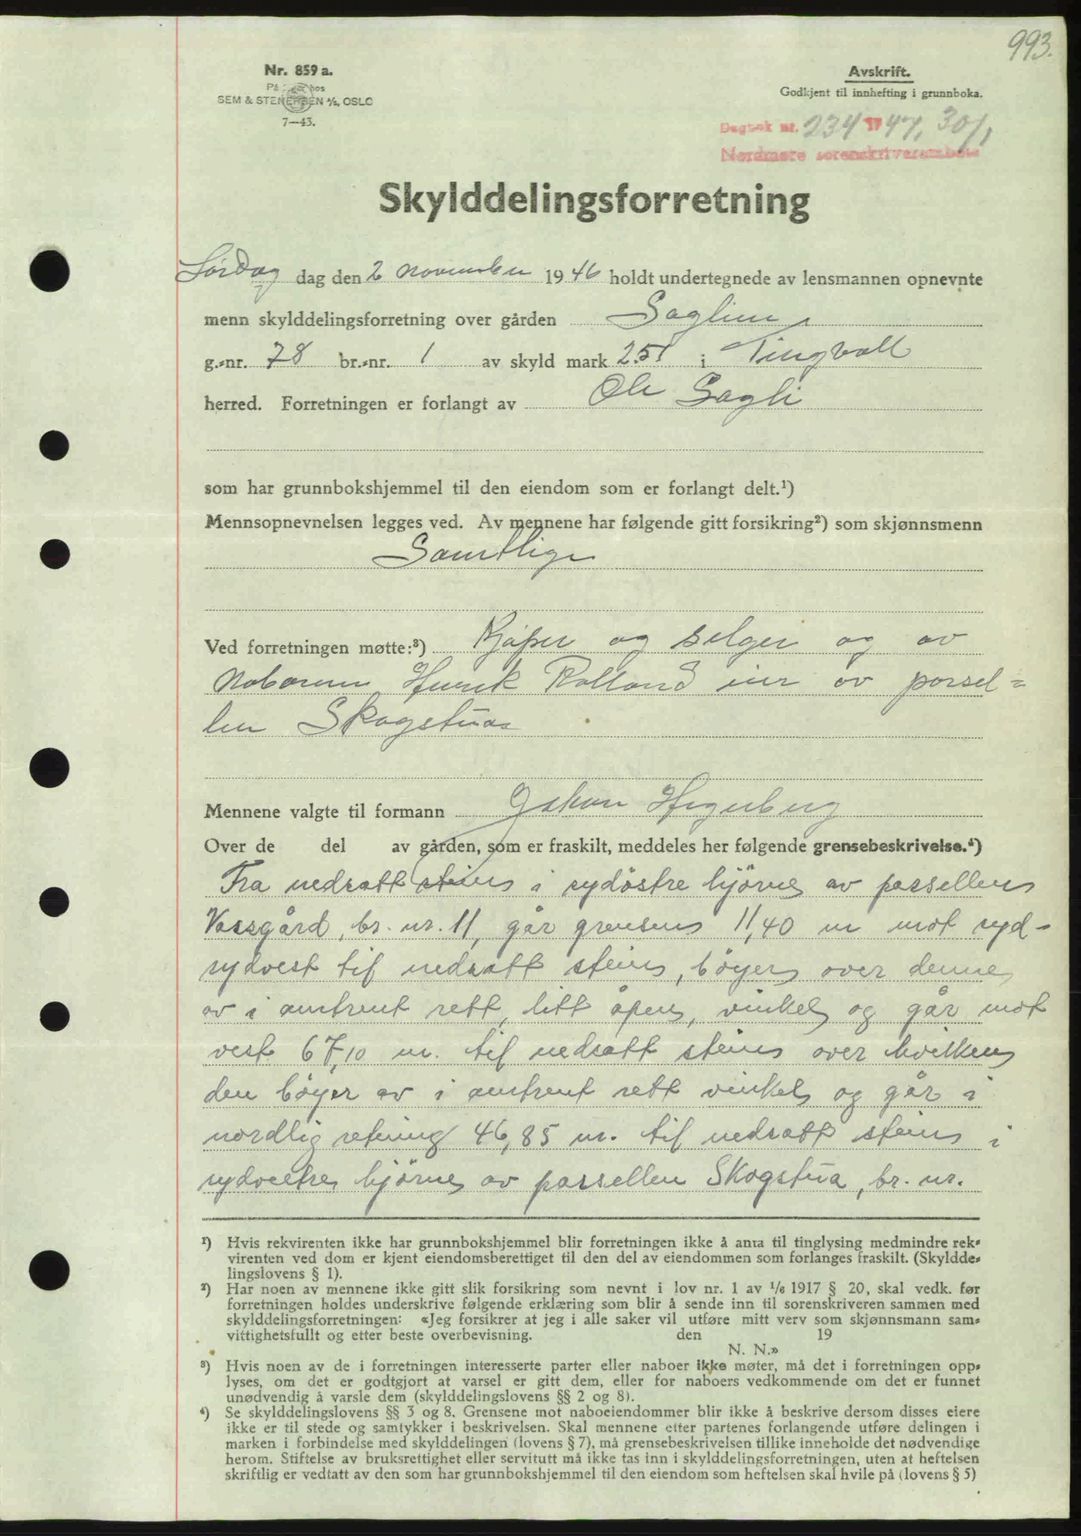 993.
Nr. 859 a.
På lager hos
SEM & STENERSEN A/S, OSLO
7—43.
Avskrift.
Godkjent til innhefting i grunnboka.
Dagbok nr. 234 1947, 30/1
Nordmøre sorenskriverembete
Skylddelingsforretning
Lördag dag den 2 november 1946 holdt undertegnede av lensmannen opnevnte
menn skylddelingsforretning over gården Saglien
g.-nr. 78 br.-nr. 1 av skyld mark 2.51 i Tingvoll
herred. Forretningen er forlangt av Ole Sagli
som har grunnbokshjemmel til den eiendom som er forlangt delt.¹)
Mennsopnevnelsen legges ved. Av mennene har følgende gitt forsikring²) som skjønnsmenn
Samtlige
Ved forretningen møtte:³) Kjøper og selger og av
naboerne Henrik Rolland eier av parsel=
len Skogstua
Mennene valgte til formann Håkon Hegerberg
Over de del av gården, som er fraskilt, meddeles her følgende grensebeskrivelse.⁴)
Fra nedsatt stein i sydöstre hjörne av parsellen
Vassgård, br. nr. 11, går grensen 11,40 m mot syd-
sydvest til nedsatt stein, böyer over denne
av i omtrent rett, litt åpen, vinkel og går mot
vest 67,10 m. til nedsatt stein over hvilken
den böyer av i omtrent rett vinkel og går i
nordlig retning 46,85 m. til nedsatt stein i
sydvestre hjörne av parsellen Skogstua, br. nr.
¹) Hvis rekvirenten ikke har grunnbokshjemmel blir forretningen ikke å anta til tinglysing medmindre rek-
virenten ved dom er kjent eiendomsberettiget til den del av eiendommen som forlanges fraskilt. (Skyldde-
lingslovens § 1).
²) Har noen av mennene ikke gitt slik forsikring som nevnt i lov nr. 1 av 1/6 1917 § 20, skal vedk. før
forretningen holdes underskrive følgende erklæring som blir å sende inn til sorenskriveren sammen med
skylddelingsforretningen: «Jeg forsikrer at jeg i alle saker vil utføre mitt verv som skjønnsmann sam-
vittighetsfullt og etter beste overbevisning. den 19
N. N.»
³) Hvis noen av de i forretningen interesserte parter eller naboer ikke møter, må det i forretningen opp-
lyses, om det er godtgjort at varsel er gitt dem, eller for naboers vedkommende om det er funnet
unødvendig å varsle dem (skylddelingslovens §§ 2 og 8).
⁴) Se skylddelingslovens §§ 3 og 8. Grensene mot naboeiendommer blir ikke å beskrive dersom disses eiere
ikke er til stede og samtykker i beskrivelsen. Skal mennene etter partenes forlangende utføre delingen i
marken i forbindelse med skylddelingen (lovens § 7), må grensebeskrivelsen tillike inneholde det nødvendige
herom. Stiftelse av bruksrettighet eller servitutt må ikke tas inn i skylddelingsforretningen, uten at heftelsen
skriftlig er vedtatt av den som har grunnbokshjemmel til den eiendom som heftelsen skal hvile på (lovens § 5)